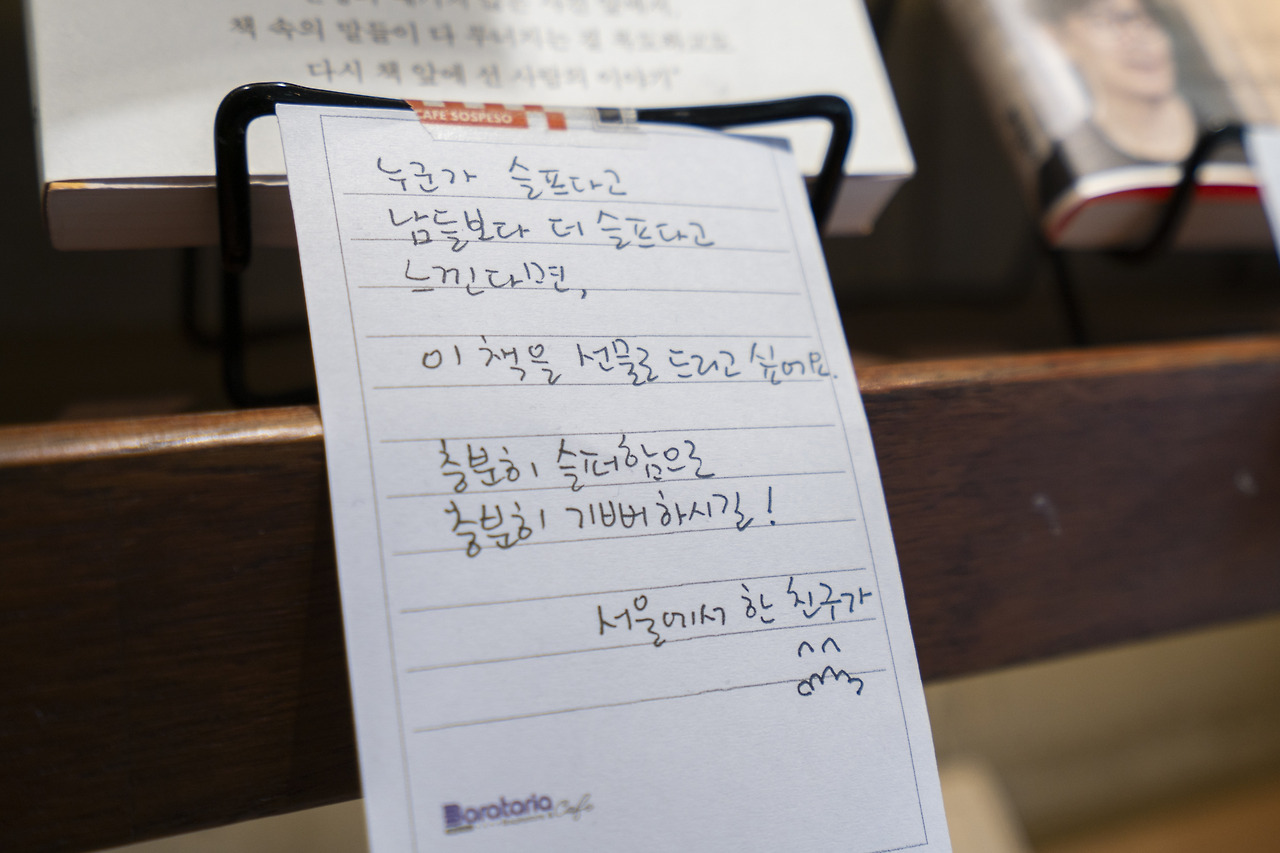 책 속의 말들이 다 무너지는 걸 목도하고도
다시 책 앞에 선 사람의 이야기"
CAFE SOSPESO
누군가 슬프다고
남들보다 더 슬프다고
느낀다면,
이 책을 선물로 드리고 싶어요.
충분히 슬퍼함으로
충분히 기뻐하시길!
서울에서 한 친구가
^^
Boratoria
Cafe